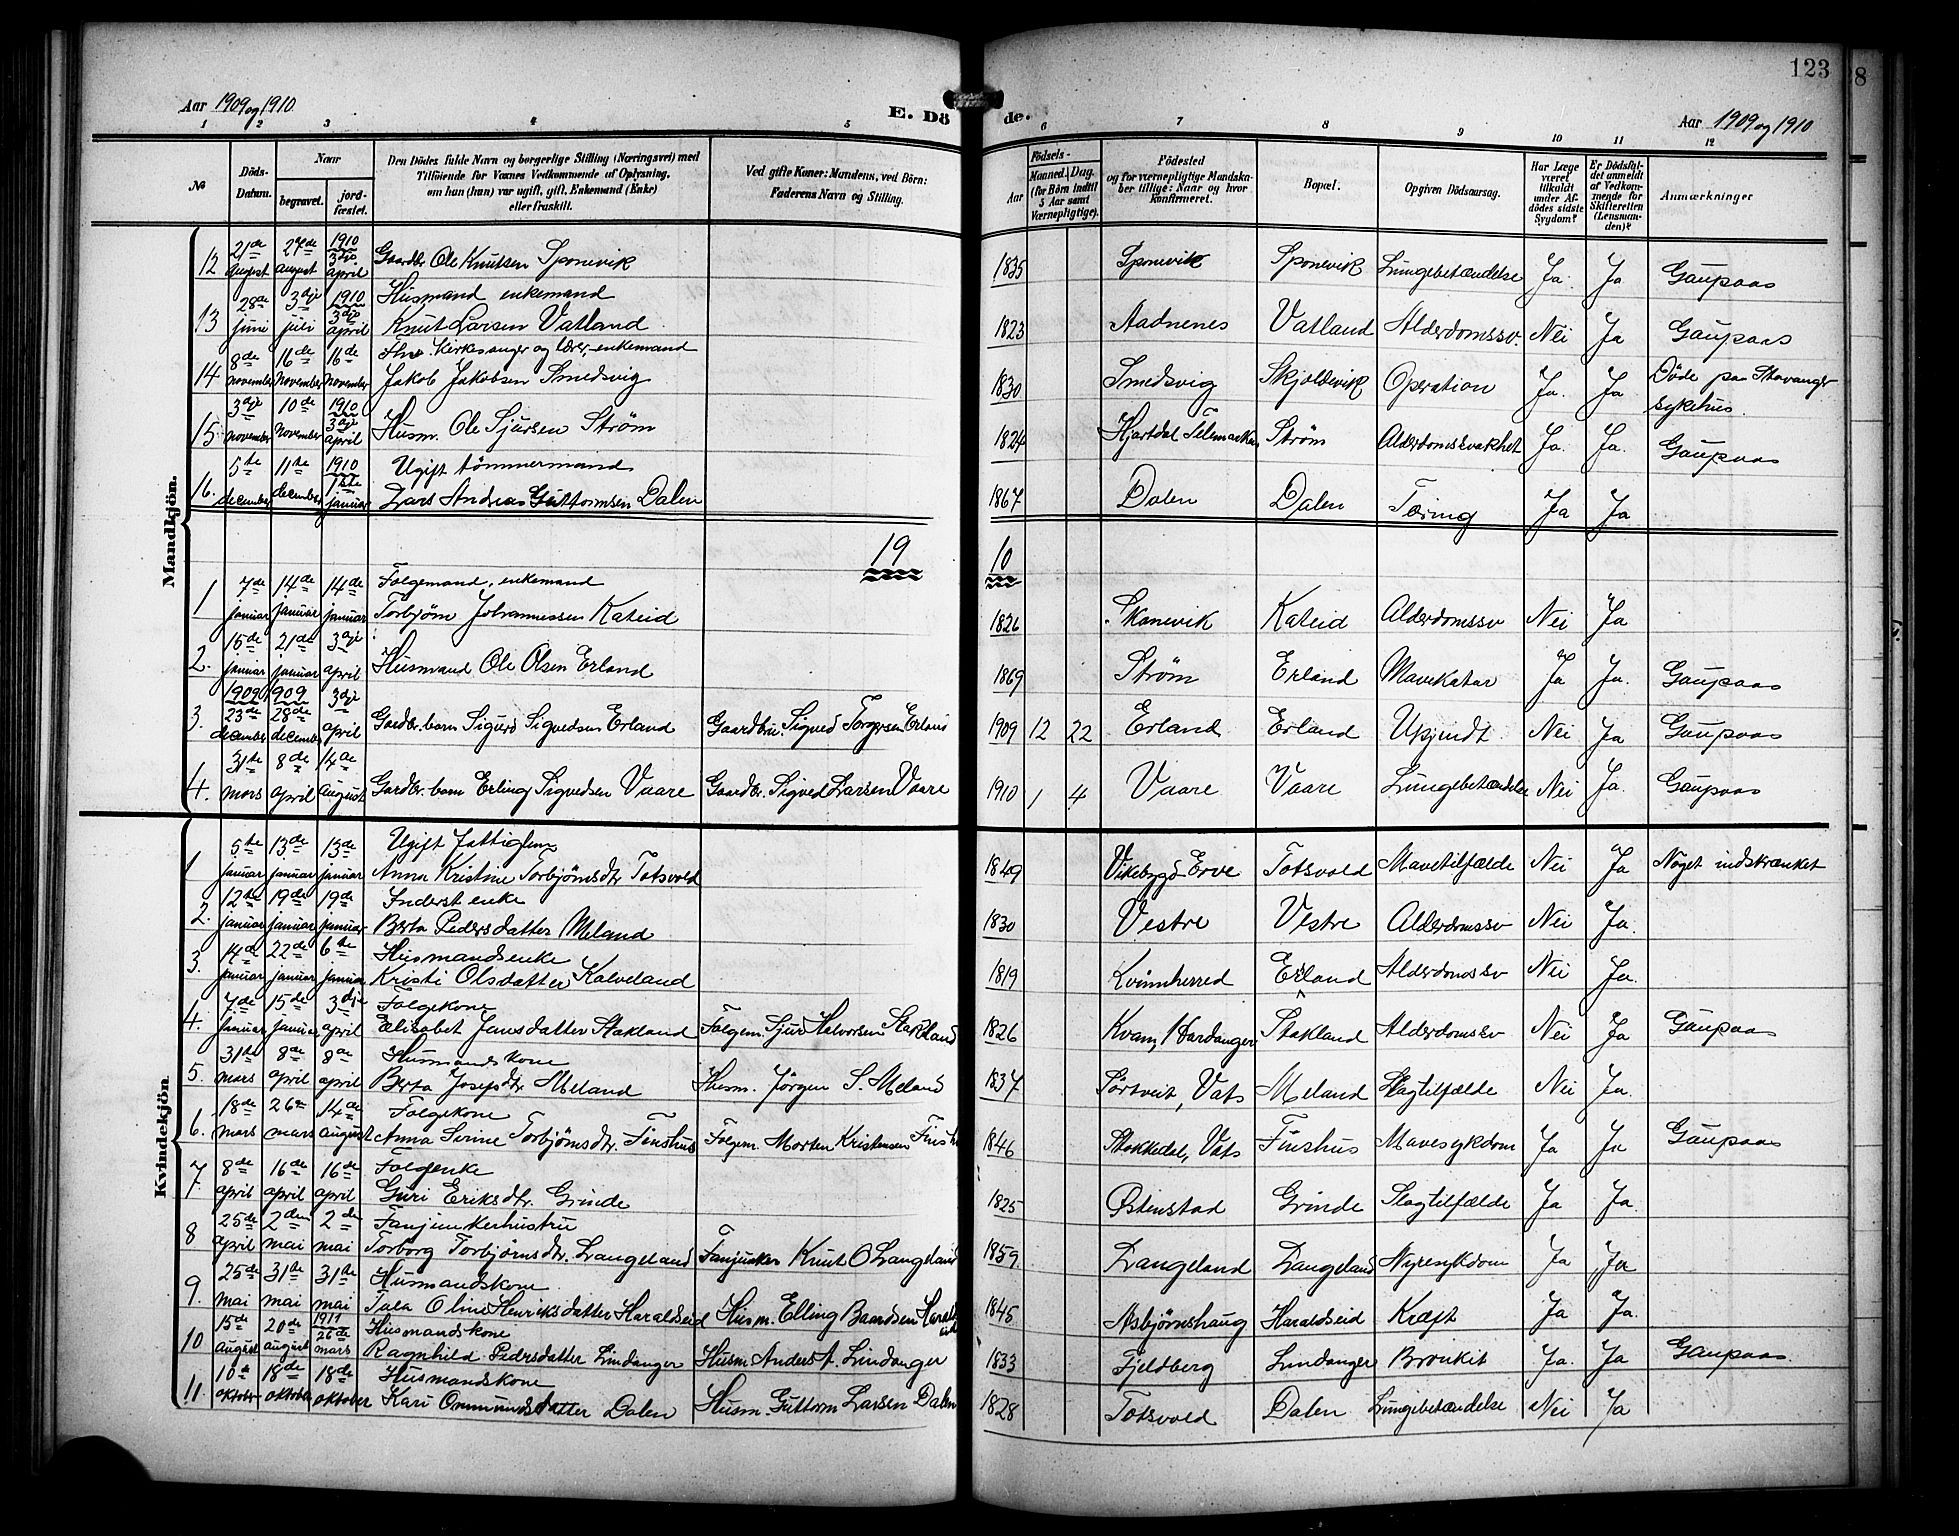 123
8
Aar 1909 og 1910
E. Dö de.
Aar 1909 og 1910
1 2 3 4 5 6 7 8 9 10 11 12
№
Döds-Datum.
Naar
begravet.
jord-fæstet.
Den Dödes fulde Navn og borgerlige Stilling (Næringsvei) med
Tilföiende for Voxnes Vedkommende af Oplysning,
om hun (han) var ugift, gift, Enkemand (Enke)
eller fraskilt.
Ved gifte Koner: Mandens, ved Börn:
Faderens Navn og Stilling.
Födsels-
Aar
Maaned. Dag.
(for Börn indtil
5 Aar samt
Værnepligtige).
Födested
og for værnepligtige Mandska-
ber tillige: Naar og hvor
Konfirmeret.
Bopæl.
Opgiven Dödsaarsag.
Har Læge
været
tilkaldt
under Af-
dödes sidste
Sygdom?
Er Dödsfal-
det anmeldt
af Vedkom-
mende for
Skifteretten
(Lensman-
den)?
Anmærkninger
Mandkjön.
12 21de august 27de august 1910 3dje april Gaardbr Ole Knutsen Sponevik 1835 Sponevik Sponevik Lungebetændelse Ja. Ja Gaupaas
Husmand enkemand
13 28de juni 3dje juli 1910 3dje april Knut Larsen Vatland 1823 Aadnenes Vatland Alderdomssv. Nei Ja Gaupaas
Fhv. Kirkesanger og lærer, enkemand
14 8de november 16de november 16de november Jakob Jakobsen Smedsvig 1830 Smedsvig Skjoldevik Operation Ja. Ja Døde paa Stavanger sykehus.
15. 3dje november 10de november 1910 3dje april Husm. Ole Sjursen Strøm 1824 Hjartdal Telemarken Strøm Alderdomssvakhet Ja. Ja. Gaupaas
Ugift tømmermand
16. 5te december 11te december 1910 januar Lars Andreas Guttormsen Dalen 1867 Dalen Dalen Tæring Ja Ja
19 10
Følgemand, enkemand
1 7de januar 14de januar 14de januar Torbjørn Johannessen Kateid 1826 Skonevik Kateid Alderdomssv Nei Ja
2. 15de januar 21de januar 3dje april Husmand Ole Olsen Erland 1869 Strøm Erland Mavekatar Ja Ja. Gaupaas
3. 1909 23de december 1909 28de december 3dje april Gardbr. barn Sigurd Sigvedsen Erland Gaardbru. Sigved Torgersen Erland 1909 12 22 Erland Erland Ukjendt Nei Ja Gaupaas
4. 31te mars 8de april 14de august Gardbr. barn Erling Sigvedsen Vaare Gaardbr. Sigved Larsen Vaare 1910 1 4 Vaare Vaare Lungebetændelse Nei Ja. Gaupaas
Kvindekjön.
Ugift fattiglem
1 5te januar 13de januar 13de januar Anna Kristine Torbjørnsdtr Totsvold 1849 Vikebygd Erve Totsvold Mavetilfælde Nei Ja Noget indskrænket
Inderst enke
2. 12te januar 19de januar 19de januar Berta Pedersdatter Meland 1830 Vestre Vestre Alderdomssv Nei Ja.
Husmandsenke
3. 14de januar 22de januar 6te januar Kristi Olsdatter Kalveland 1819 Kvinnherred Erland Alderdomssv Nei Ja.
Følgekone
4. 7de januar 15de januar 3dje april Elisabet Jansdatter Stakland Følgem. Sjur Halvorsen Stakland 1826 Kvam, Hardanger Stakland Alderdomssv Nei Ja Gaupaas
Husmandskone
5. 31te mars 8de april 8de april Berta Josepsdtr Meland Husm. Jørgen S. Meland 1837 Sørtveit, Vats Meland Slagtilfælde Nei Ja.
Følgekone
6. 18de mars 26de mars 14de august Anna Serine Torbjørnsdtr. Finshus Følgem. Morten Kristensen 1846 Stokkedal, Vats Finshus Mavesykdom Ja Ja Gaupaas
Følgenke
7. 8de april 16de april 16de april Guri Eriksdtr. Grinde 1825 Østenstad Grinde Slagtilfælde Ja Ja.
Fanjunkerhustru
8 25de april 2den mai 2den mai Torborg Torbjørnsdtr. Langeland Fanjunker Knut O Langeland 1859 Langeland Langeland Nyresykdom Ja Ja
Husmandskone
9. 25de mai 31te mai 31te mai Tala Oline Henriksdatter Haraldseid Husm. Elling Baardsen Haraldseid 1845 Asbjørnshaug Haraldseid Kræft Ja Ja.
Husmandskone
10 15de august 20de august 1911 26de mars Ragnhild Pedersdatter Lindanger Husm Anders A. Lindanger 1833 Fjeldberg Lindanger Bronkit Ja. Ja Gaupaas.
Husmandskone
11. 10de oktober 18de oktober 18de oktober Kari Ommundsdatter Dalen Husm. Guttorm Larsen Dalen 1828 Totsvold Dalen Lungebetændelse Nei Ja